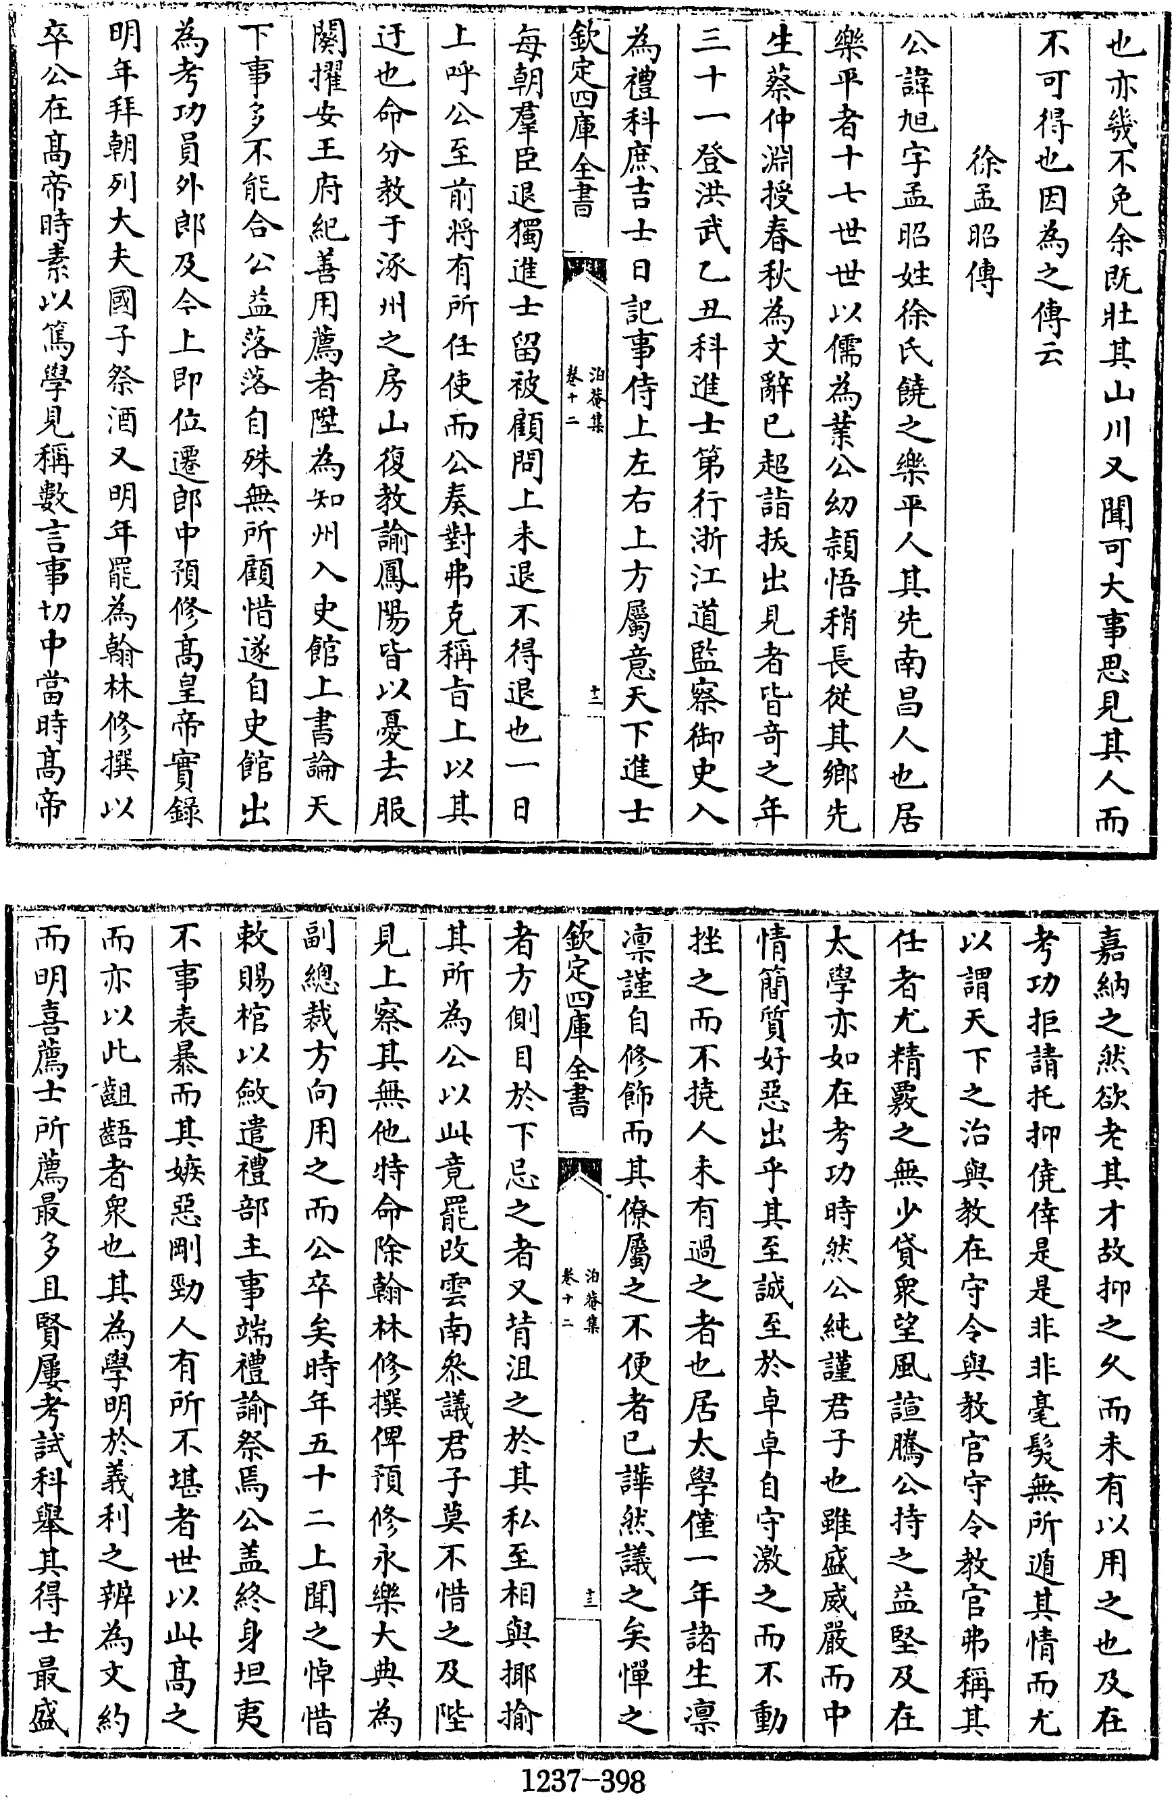 也亦幾不免余既壯其山川又聞可大事思見其人而
不可得也因為之傳云
徐孟昭傳
公諱旭字孟昭姓徐氏饒之樂平人其先南昌人也居
樂平者十七世世以儒為業公幼頴悟稍長從其鄉先
生蔡仲淵授春秋為文辭已超詣拔出見者皆奇之年
三十一登洪武乙丑科進士第行浙江道監察御史入
為禮科庶吉士日記事侍上左右上方屬意天下進士
欽定四庫全書
泊菴集
卷十二
十二
每朝羣臣退獨進士留被顧問上未退不得退也一日
上呼公至前將有所任使而公奏對弗克稱旨上以其
迂也命分教于涿州之房山復教諭鳳陽皆以憂去服
闋擢安王府紀善用薦者陞為知州入史館上書論天
下事多不能合公益落落自殊無所顧惜遂自史館出
為考功員外郎及今上即位遷郎中預修高皇帝實錄
明年拜朝列大夫國子祭酒又明年罷為翰林修撰以
卒公在高帝時素以篤學見稱數言事切中當時高帝
嘉納之然欲老其才故抑之久而未有以用之也及在
考功拒請托抑僥倖是是非非毫髮無所遁其情而尤
以謂天下之治與教在守令與教官守令教官弗稱其
任者尤精覈之無少貸衆望風諠騰公持之益堅及在
太學亦如在考功時然公純謹君子也雖盛威嚴而中
情簡質好惡出乎其至誠至於卓卓自守激之而不動
挫之而不撓人未有過之者也居太學僅一年諸生凛
凛謹自修飾而其僚屬之不便者已譁然議之矣憚之
欽定四庫全書
泊菴集
卷十二
十三
者方側目於下忌之者又背沮之於其私至相與揶揄
其所為公以此竟罷改雲南叅議君子莫不惜之及陛
見上察其無他特命除翰林修撰俾預修永樂大典為
副總裁方向用之而公卒矣時年五十二上聞之悼惜
敕賜棺以斂遣禮部主事端禮諭祭焉公盖終身坦夷
不事表暴而其嫉惡剛勁人有所不堪者世以此高之
而亦以此齟齬者衆也其為學明於義利之辨為文約
而明喜薦士所薦最多且賢屢考試科舉其得士最盛
1237-398